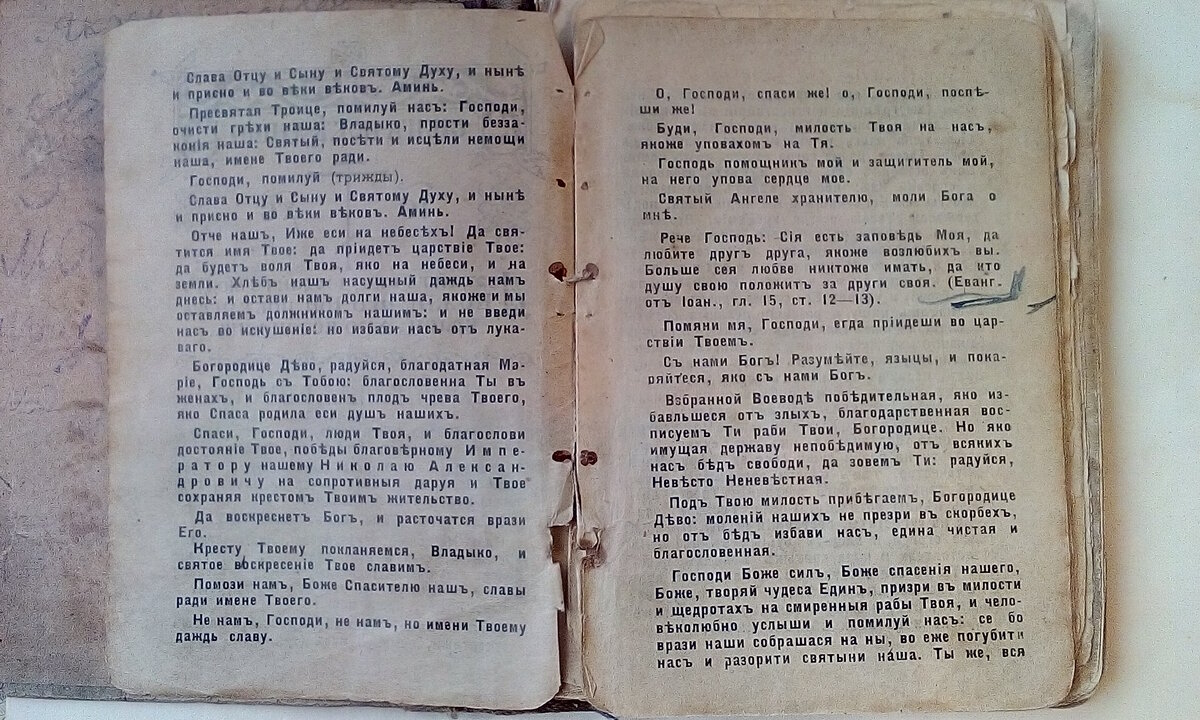 Слава Отцу и Сыну и Святому Духу, и нынѣ
и присно и во вѣки вѣковъ. Аминь.
Пресвятая Троице, помилуй насъ: Господи,
очисти грѣхи наша: Владыко, прости безза-
конія наша: Святый, посѣти и исцѣли немощи
наша, имене Твоего ради.
Господи, помилуй (трижды).
Слава Отцу и Сыну и Святому Духу, и нынѣ
и присно и во вѣки вѣковъ. Аминь.
Отче нашъ, Иже еси на небесѣхъ! Да свя-
тится имя Твое: да пріидетъ царствіе Твое:
да будетъ воля Твоя, яко на небеси, и на
земли. Хлѣбъ нашъ насущный даждь намъ
днесь: и остави намъ долги наша, якоже и мы
оставляемъ должникомъ нашимъ: и не введи
насъ во искушеніе: но избави насъ отъ лука-
ваго.
Богородице Дѣво, радуйся, благодатная Ма-
ріе, Господь съ Тобою: благословенна Ты въ
женахъ, и благословенъ плодъ чрева Твоего,
яко Спаса родила еси душъ нашихъ.
Спаси, Господи, люди Твоя, и благослови
достояніе Твое, побѣды благовѣрному Импе-
ратору нашему Николаю Алексан-
дровичу на сопротивныя даруя и Твое
сохраняя крестомъ Твоимъ жительство.
Да воскреснетъ Богъ, и расточатся врази
Его.
Кресту Твоему покланяемся, Владыко, и
святое воскресеніе Твое славимъ.
Помози намъ, Боже Спасителю нашъ, славы
ради имене Твоего.
Не намъ, Господи, не намъ, но имени Твоему
даждь славу.
О, Господи, спаси же! о, Господи, поспѣ-
ши же!
Буди, Господи, милость Твоя на насъ,
якоже уповахомъ на Тя.
Господь помощникъ мой и защититель мой,
на него упова сердце мое.
Святый Ангеле хранителю, моли Бога о
мнѣ.
Рече Господь: Сія есть заповѣдь Моя, да
любите другъ друга, якоже возлюбихъ вы.
Больше сея любве никтоже имать, да кто
душу свою положитъ за други своя. (Еванг.
отъ Іоан., гл. 15, ст. 12—13).
Помяни мя, Господи, егда пріидеши во цар-
ствіи Твоемъ.
Съ нами Богъ! Разумѣйте, языцы, и пока-
ряйтеся, яко съ нами Богъ.
Взбранной Воеводѣ побѣдительная, яко из-
бавльшеся отъ злыхъ, благодарственная вос-
писуемъ Ти раби Твои, Богородице. Но яко
имущая державу непобѣдимую, отъ всякихъ
насъ бѣдъ свободи, да зовемъ Ти: радуйся,
Невѣсто Неневѣстная.
Подъ Твою милость прибѣгаемъ, Богородице
Дѣво: моленій нашихъ не презри въ скорбехъ,
но отъ бѣдъ избави насъ, едина чистая и
благословенная.
Господи Боже силъ, Боже спасенія нашего,
Боже, творяй чудеса Единъ, призри въ милости
и щедротахъ на смиренныя рабы Твоя, и чело-
вѣколюбно услыши и помилуй насъ: се бо
врази наши собрашася на ны, во еже погубити
насъ и разорити святыни наша. Ты же, вся